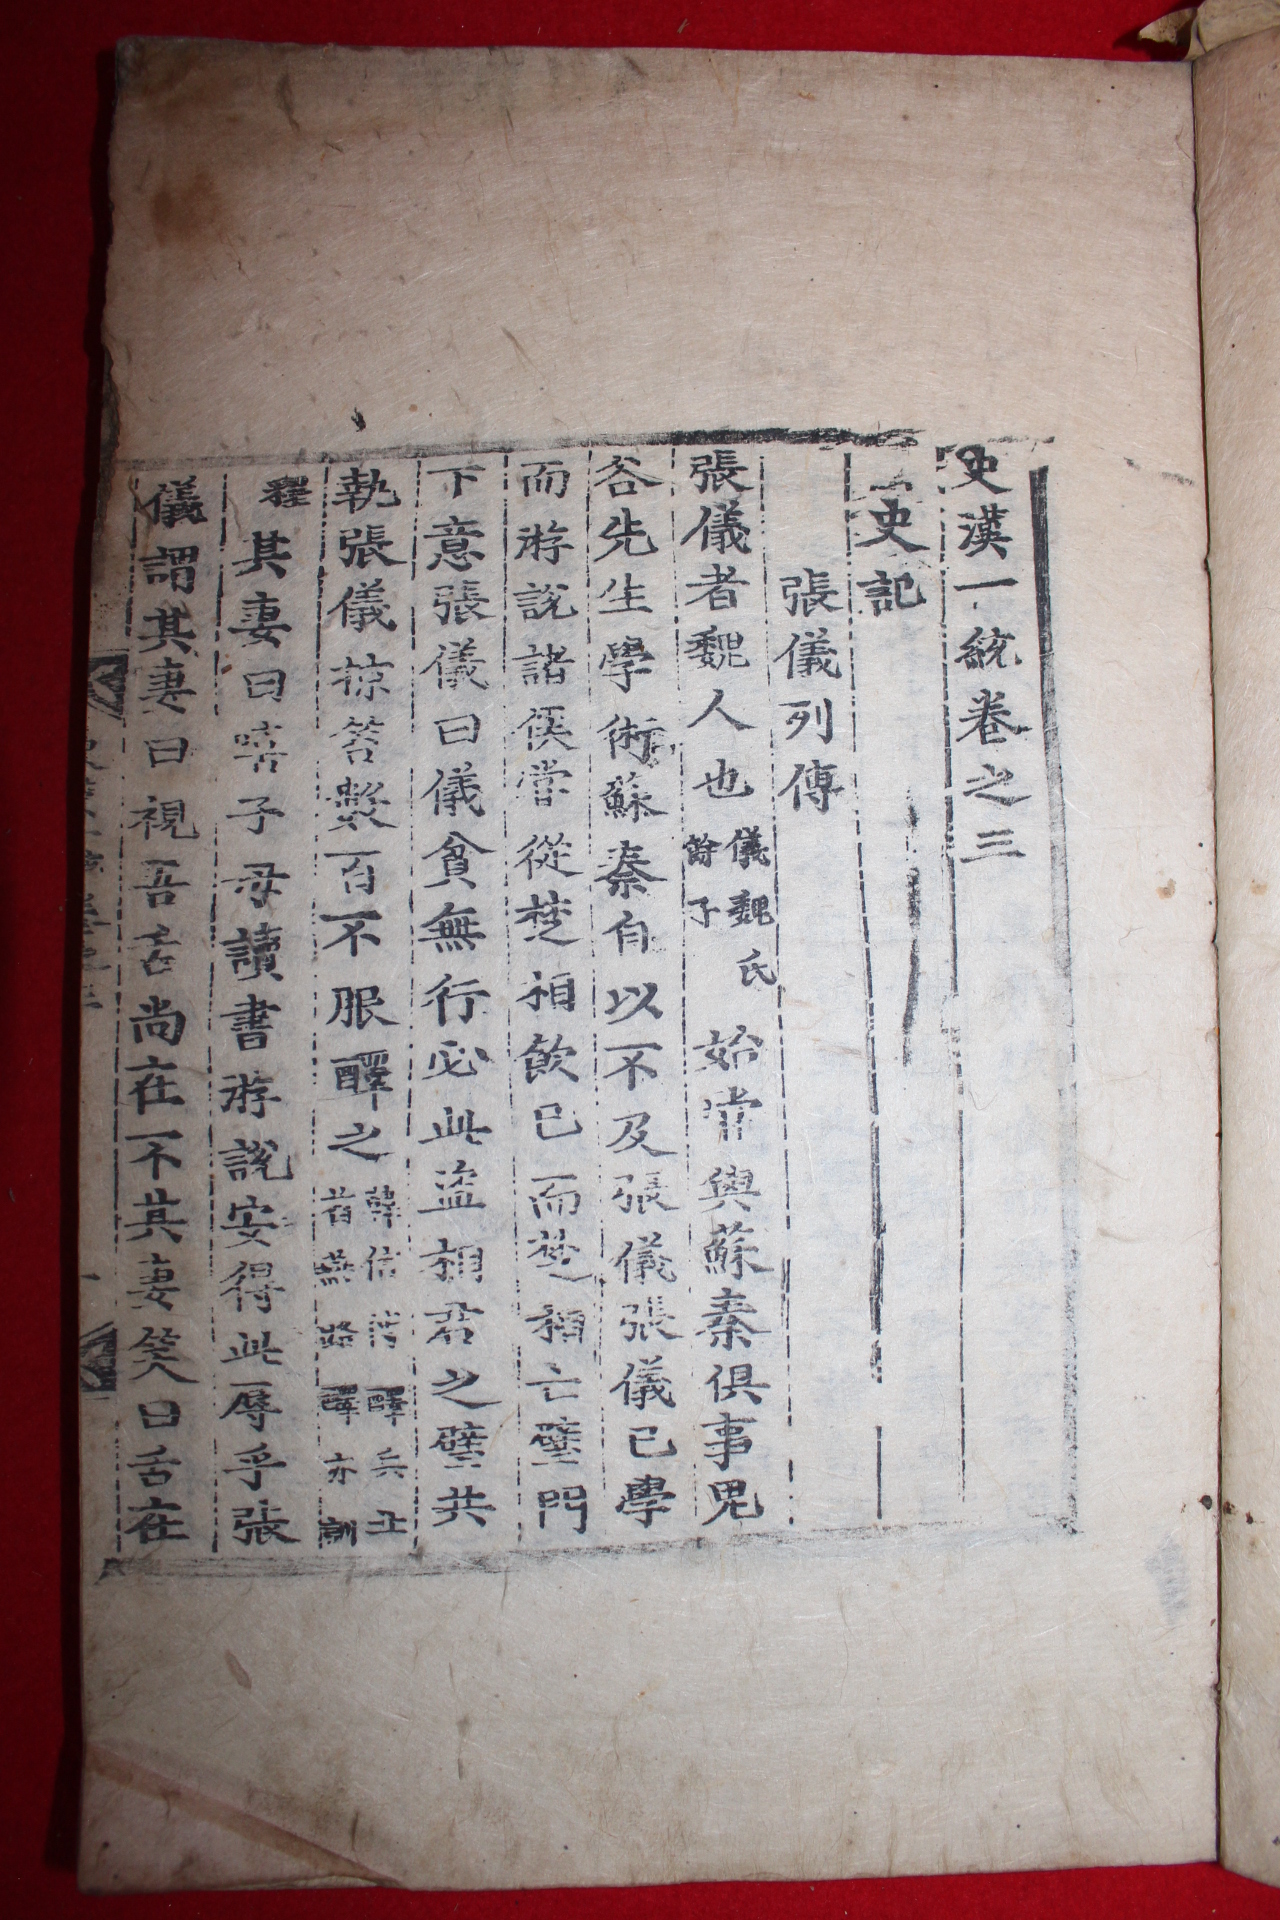 史漢一統卷之三
史記
張儀列傳
張儀者魏人也儀魏氏餘子始常與蘇秦俱事鬼
谷先生學術蘇秦自以不及張儀張儀已學
而游說諸侯嘗從楚相飮已而楚相亡璧門
下意張儀曰儀貧無行必此盜相君之璧共
執張儀掠笞數百不服醳之韓信傳醳兵北首燕路醳亦訓
釋其妻曰嘻子毋讀書游說安得此辱乎張
儀謂其妻曰視吾舌尚在不其妻笑曰舌在